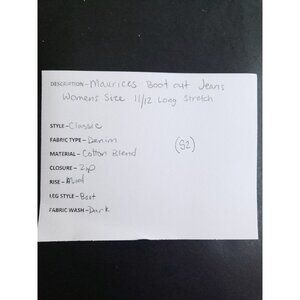 DESCRIPTION-Maurices Boot cut Jeans
Womens Size 11/12 Long Stretch
STYLE-Classic
FABRIC TYPE-Denim
MATERIAL-Cotton Blend
(S2)
CLOSURE-Zip
RISE-Mid
LEG STYLE-Boot
FABRIC WASH-Dark